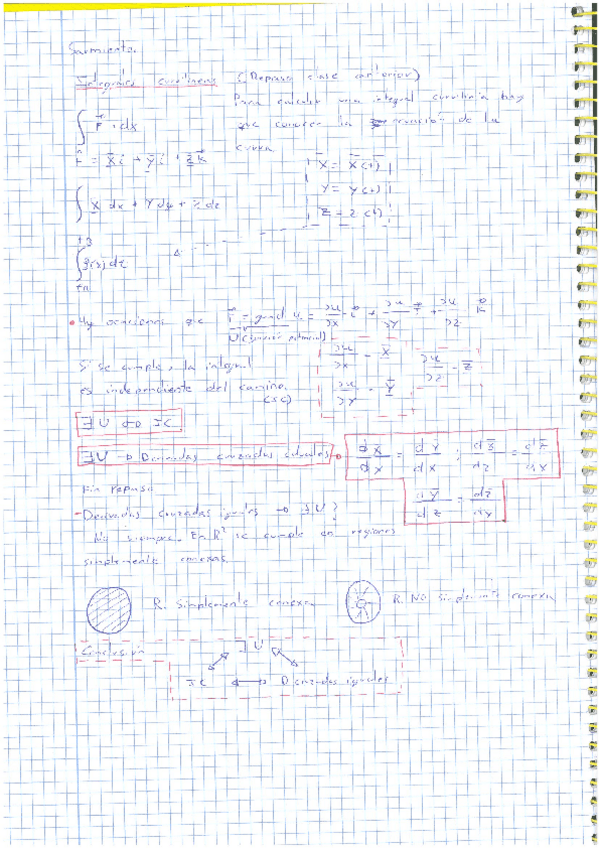 Sarmiento.
Integrales curvilíneas (Repaso clase anterior)
Para calcular una integral curvilínea hay
que conocer la ecuación de la
curva
∫ F⃗ · dx
F⃗ = X i + Y j + Z k
X = X(t)
Y = Y(t)
Z = Z(t)
∫ X dx + Y dy + Z dz
∫
• Hy ocasiones que F⃗ = grad u = ∂u/∂x i⃗ + ∂u/∂y j⃗ + ∂u/∂z k⃗
U (función potencial)
Si se cumple, la integral
es independiente del camino.
(IC)
∂u/∂x = X ∂u/∂z = Z
∂u/∂y = Y
∃U ↔ IC
∃U → Derivadas cruzadas iguales
dX/dx = dY/dx ; dX/dz = dZ/dx
dY/dz = dZ/dy
Fin repaso
- Derivadas cruzadas iguales → ∃U?
No siempre. En R² se cumple en regiones
simplemente conexas.
R. Simplemente conexa
R. No simplemente conexa
Conclusión
∃U
IC ↔ D cruzadas iguales